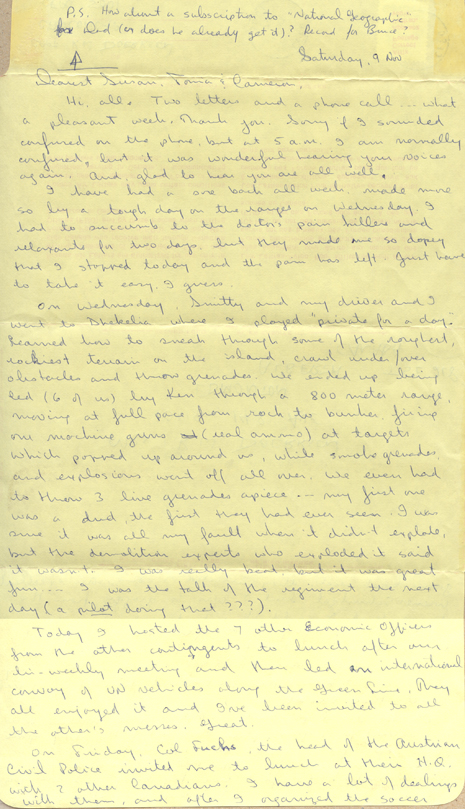 P.S. How about a subscription to "National Geographic"
for Dad (or does he already get it)? Record for Bruce?
Saturday, 9 Nov
Dearest Susan, Toma & Cameron,
Hi, all. Two letters and a phone call... what
a pleasant week. Thank you. Sorry if I sounded
confused on the phone, but at 5 a.m. I am normally
confused, but it was wonderful hearing your voices
again. And, glad to hear you are all well.
I have had a sore back all week, made more
so by a tough day on the ranges on Wednesday. I
had to succumb to the doctor's pain killers and
relaxants for two days, but they made me so dopey
that I stopped today and the pain has left. Just have
to take it easy, I guess.
On Wednesday, Smitty and my driver and I
went to Dhekelia where I played "private for a day."
Learned how to sneak through some of the roughest,
rockiest terrain on the island, crawl under/over
obstacles and throw grenades. We ended up being
led (6 of us) by Ken through a 800 meter range,
moving at full pace from rock to bunker, firing
our machine guns (real ammo) at targets
which popped up around us, while smoke grenades
and explosions went off all over. We even had
to throw 3 live grenades apiece... my first one
was a dud, the first they had ever seen. I was
sure it was all my fault when it didn't explode,
but the demolition experts who exploded it said
it wasn't. I was really beat, but it was great
fun... I was the talk of the regiment the next
day (a pilot doing that???).
Today I hosted the 7 other Economic Officers
from the other contingents to lunch after our
bi-weekly meeting and then led an international
convoy of UN vehicles along the Green Line. They
all enjoyed it and I've been invited to all
the other's messes. Great.
On Friday, Col Fuchs, the head of the Austrian
Civil Police invited me to lunch at their H.Q.
with 2 other Canadians. I have a lot of dealings
with them, and after I organized the soccer